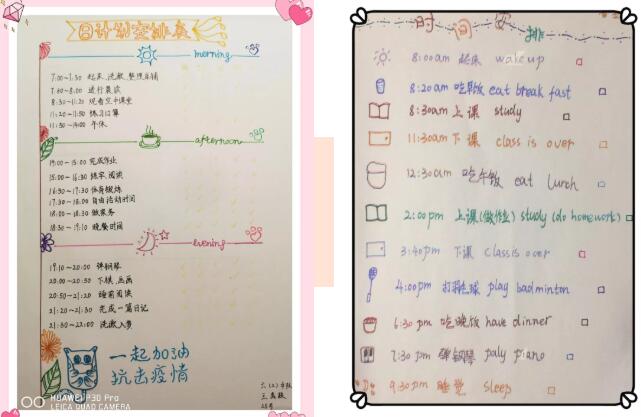 日计划安排表
morning
7:00~7:30 起床、洗漱、整理床铺
7:30~8:00 进行晨读
8:30~11:20 观看空中课堂
11:20~11:50 练习口算
11:50~14:00 午休
afternoon
14:00~15:00 完成作业
15:00~16:30 练字、阅读
16:30~17:30 体育锻炼
17:30~18:00 自由活动时间
18:00~18:30 做家务
18:30~19:10 晚餐时间
evening
19:10~20:00 弹钢琴
20:00~20:50 下棋、画画
20:50~21:20 睡前阅读
21:20~21:30 完成一篇日记
21:30~22:00 洗漱入梦
一起加油
抗击疫情
HUAWEI P30 Pro
LEICA QUAD CAMERA
时间安排
8:00am 起床 wake up
8:20am 吃早饭 eat break fast
8:30am 上课 study
11:30am 下课 class is over
12:30am 吃午饭 eat lurch
2:00pm 上课(做作业) study (do homework)
3:40pm 下课 class is over
4:00pm 打羽毛球 play badminton
6:30 pm 吃晚饭 have dinner
7:30 pm 弹钢琴 paly piano
9:30pm 睡觉 sleep